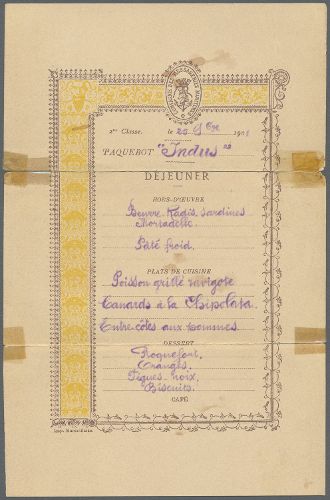 COMPAGNIE DES MESSAGERIES MARITIMES
2me Classe. le 25 9bre 1901
PAQUEBOT "Indus"
DÉJEUNER
HORS-D'ŒUVRE
Beurre. Radis. Sardines
Mortadelle.
Pâté froid.
PLATS DE CUISINE
Poisson grillé ravigote
Canards à la Chipolata.
Entre-côtes aux pommes.
DESSERT
Roquefort.
Oranges.
Figues. noix.
Biscuits.
CAFÉ